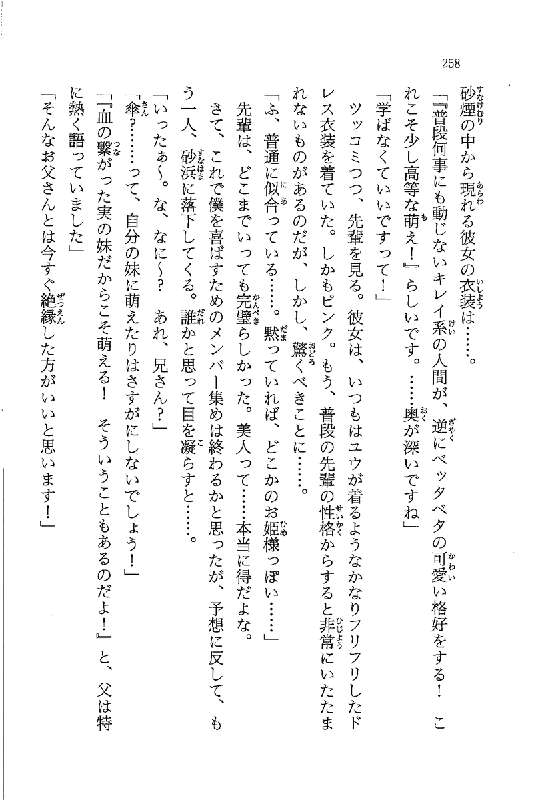 258
砂煙の中から現れる彼女の衣装は……。
「『普段何事にも動じないキレイ系の人間が、逆にベッタベタの可愛い格好をする！　こ
れこそ少し高等な萌え！』らしいです。……奥が深いですね」
「学ばなくていいですって！」
ツッコミつつ、先輩を見る。彼女は、いつもはユウが着るようなかなりフリフリしたド
レス衣装を着ていた。しかもピンク。もう、普段の先輩の性格からすると非常にいたたま
れないものがあるのだが、しかし、驚くべきことに……。
「ふ、普通に似合っている……。黙っていれば、どこかのお姫様っぽい……」
先輩は、どこまでいっても完璧らしかった。美人って……本当に得だよな。
さて、これで僕を喜ばすためのメンバー集めは終わるかと思ったが、予想に反して、も
う一人、砂浜に落下してくる。誰かと思って目を凝らすと……。
「いったぁ〜。な、なに〜？　あれ、兄さん？」
「傘？……って、自分の妹に萌えたりはさすがにしないでしょう！」
「『血の繋がった実の妹だからこそ萌える！　そういうこともあるのだよ！』と、父は特
に熱く語っていました」
「そんなお父さんとは今すぐ絶縁した方がいいと思います！」